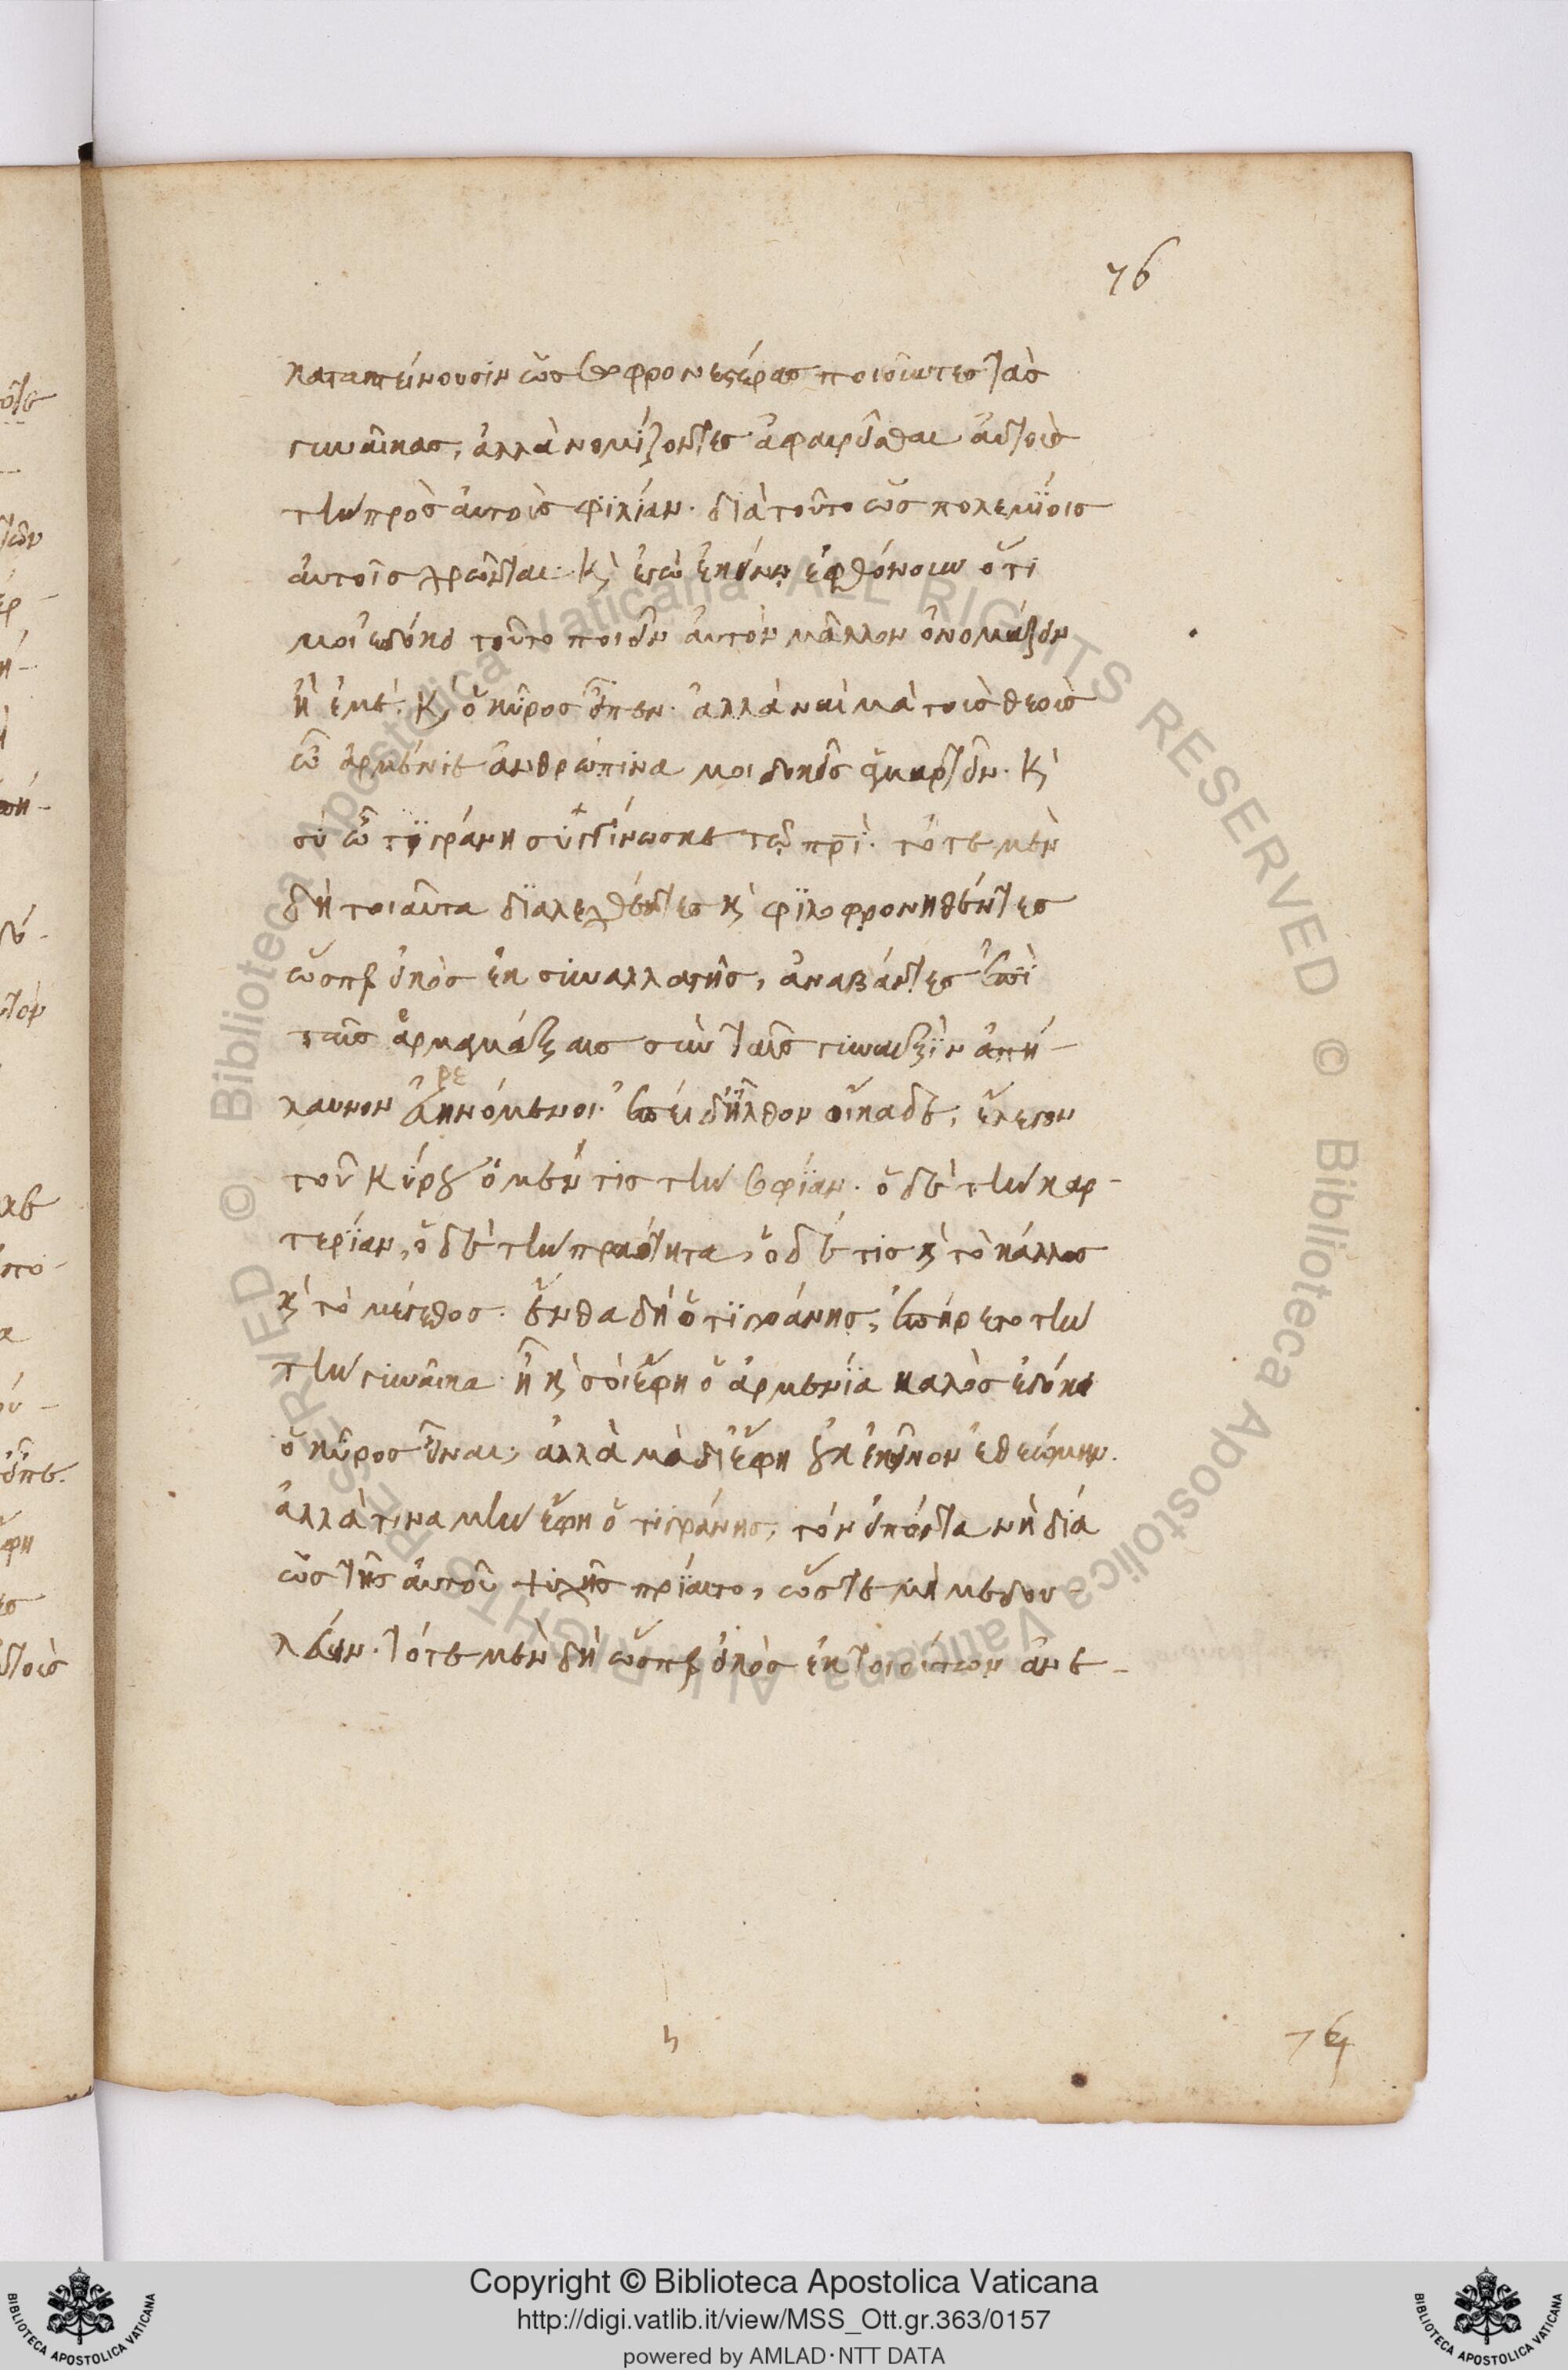 76
κατακτείνουσιν ὡς σωφρονεστέρας ποιοῦντες τὰς
γυναῖκας, ἀλλὰ νομίζοντες ἀφαιρεῖσθαι αὐτοὺς
τὴν πρὸς αὐτοὺς φιλίαν. διὰ τοῦτο ὡς πολεμίοις
αὐτοῖς χρῶνται. κ̀ ἐγὼ ἐκείνῳ ἐφθόνουν ὅτι
μοι ἐδόκει τοῦτο ποιεῖν αὐτὸν μᾶλλον ὀνομάζειν
ἢ ἐμέ. κ̀ ὁ κῦρος εἶπεν. ἀλλὰ ναὶ μὰ τοὺς θεοὺς
ὦ ἀρμένιε ἀνθρώπινα μοι δοκεῖς ἁμαρτεῖν. κ̀
σύ ὦ τιγράνη συγγίνωσκε τῷ πρι̅. τότε μὲν
δὴ τοιαῦτα διαλεχθέντες κ̀ φιλοφρονηθέντες
ὥσπερ εἰκὸς ἐκ συναλλαγῆς, ἀναβάντες ἐπὶ
ταῖς ἁρμαμάξαις σὺν ταῖς γυναιξὶν ἀπή-
ρε
λαυνον
τοῦ κύρου ὁ μέν τις τὴν σοφίαν. ὁ δὲ τὴν καρ-
τερίαν, ὁ δὲ τὴν πραότητα, ὁ δέ τις κ̀ τὸ κάλλος
κ̀ τὸ μέγεθος. ἔνθα δὴ ὁ τιγράνης, ἐπήρετο τὴν
τὴν γυναῖκα. ἦ κ̀ σοὶ ἔφη ὦ ἀρμενία καλὸς ἐδόκει
ὁ κῦρος εἶναι, ἀλλὰ μὰ δι' ἔφη οὐκ ἐκεῖνον ἐθεώμην.
ἀλλὰ τίνα μὴν ἔφη ὁ τιγράνης, τὸν εἰπόντα νὴ δία
ὡς τῆς αὑτοῦ ψυχῆς πρίαιτο, ὥστε μή με δου-
λεύειν. τότε μὲν δὴ ὥσπερ εἰκὸς ἐκ τοιούτων ἀνε-
Copyright © Biblioteca Apostolica Vaticana
http://digi.vatlib.it/view/MSS_Ott.gr.363/0157
powered by AMLAD·NTT DATA